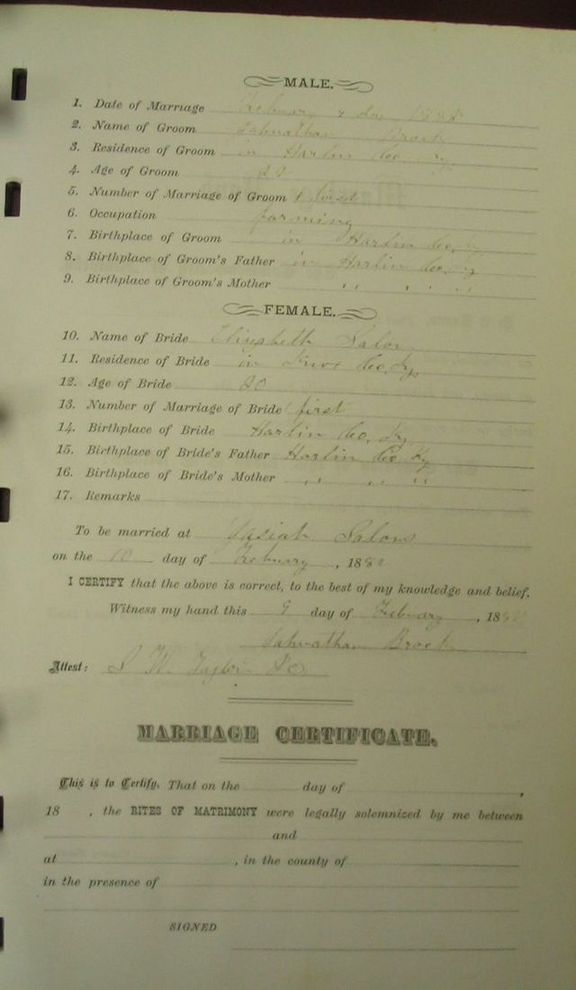 MALE.
1. Date of Marriage Febuary
2. Name of Groom Brock
3. Residence of Groom in Harlin Co, Ky,
4. Age of Groom 20
5. Number of Marriage of Groom first
6. Occupation farming
7. Birthplace of Groom in Harlin Co, Ky
8. Birthplace of Groom's Father in Harlin Co, Ky
9. Birthplace of Groom's Mother " " "
FEMALE.
10. Name of Bride Elizabeth
11. Residence of Bride in Knox Co, Ky,
12. Age of Bride 20
13. Number of Marriage of Bride first
14. Birthplace of Bride Harlin Co, Ky,
15. Birthplace of Bride's Father Harlin Co Ky
16. Birthplace of Bride's Mother " " "
17. Remarks
To be married at
on the 10 day of Febuary, 188
I CERTIFY that the above is correct, to the best of my knowledge and belief.
Witness my hand this 9 day of Febuary, 18
Brock
Attest:
MARRIAGE CERTIFICATE.
This is to Certify, That on the day of ,
18 , the RITES OF MATRIMONY were legally solemnized by me between
and
at , in the county of
in the presence of
SIGNED